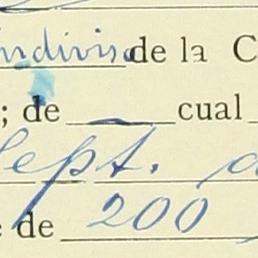 indivisa de la C
; de — cual
Sept. d
e de 200